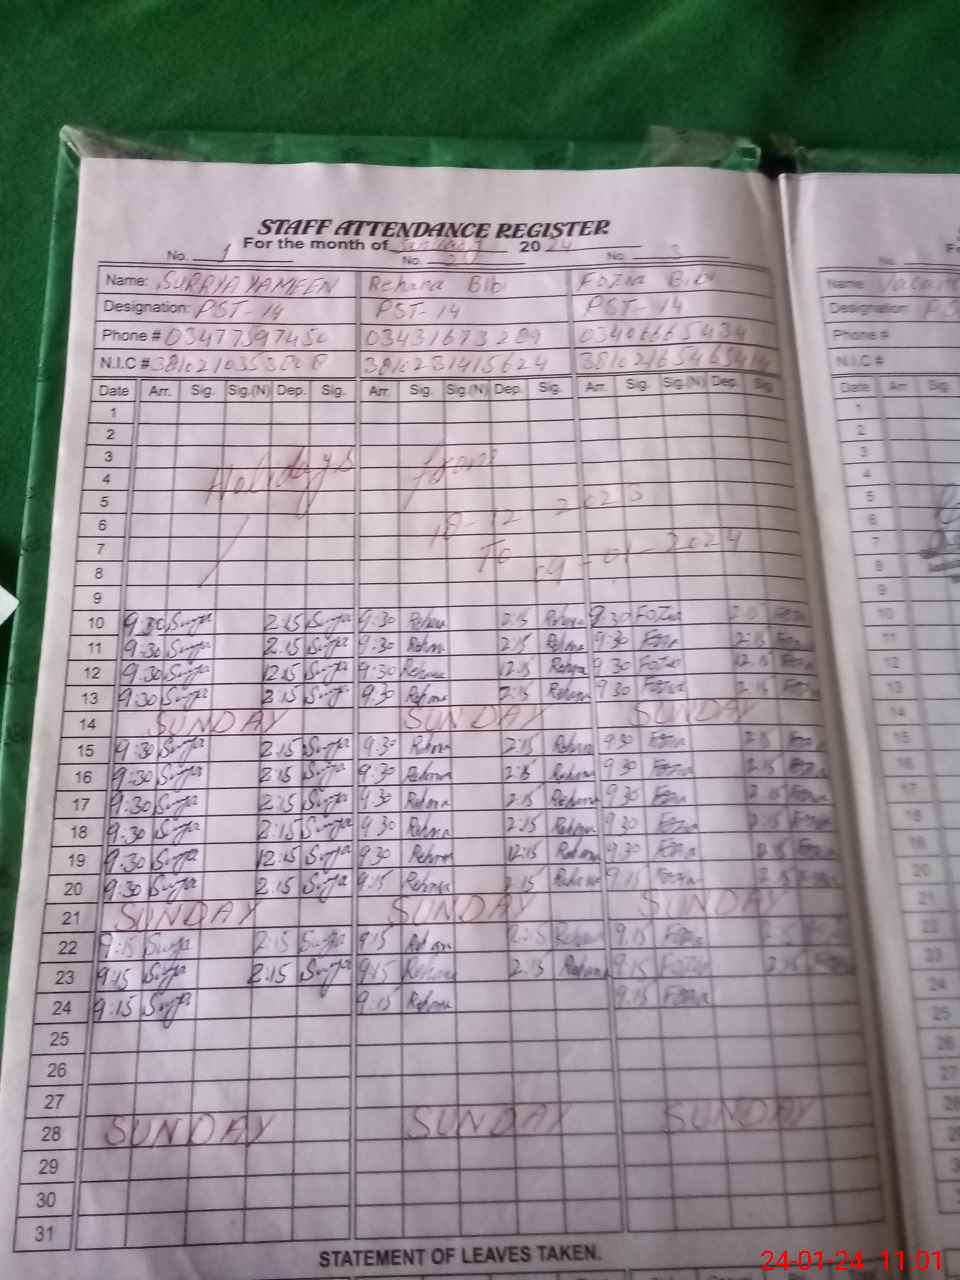 STAFF ATTENDANCE REGISTER
For the month of January 2024
No. 1 No. 2 No. 3
Name: SURRYA YAMEEN Rehana Bibi Fozia Bibi
Designation: PST-14 PST-14 PST-14
Phone # 03477597450 03431673209 03406665434
N.I.C #
Date Arr. Sig. Sig.(N) Dep. Sig. Arr. Sig. Sig.(N) Dep. Sig. Arr. Sig. Sig.(N) Dep. Sig.
1
2
3
4 Holidays from
5
6 18-12 2023
7 To 09-01-2024
8
9
10 9:30 2:15 9:30 Rehana 2:15 Rehana 9:30 Fozia
11 9:30 2:15 9:30 Rehana 2:15 Rehana 9:30 Fozia 2:15 Fozia
12 9:30 12:15 9:30 Rehana 12:15 Rehana 9:30 Fozia 12:15 Fozia
13 9:30 2:15 9:30 Rehana 2:15 Rehana 9:30 Fozia 2:15 Fozia
14 SUNDAY SUNDAY SUNDAY
15 9:30 2:15 9:30 Rehana 2:15 Rehana 9:30 Fozia 2:15 Fozia
16 9:30 2:15 9:30 Rehana 2:15 Rehana 9:30 Fozia 2:15 Fozia
17 9:30 2:15 9:30 Rehana 2:15 Rehana 9:30 Fozia 2:15 Fozia
18 9:30 2:15 9:30 Rehana 2:15 Rehana 9:30 Fozia 2:15 Fozia
19 9:30 12:15 9:30 Rehana 12:15 Rehana 9:30 Fozia Fozia
20 9:30 2:15 9:15 Rehana 2:15 Rehana 9:15 Fozia 2:15 Fozia
21 SUNDAY SUNDAY SUNDAY
22 9:15 2:15 9:15 Rehana 2:15 Rehana 9:15 Fozia 2:15 Fozia
23 9:15 2:15 9:15 Rehana 2:15 Rehana 9:15 Fozia 2:15 Fozia
24 9:15 9:15 Rehana 9:15 Fozia
25
26
27
28 SUNDAY SUNDAY SUNDAY
29
30
31
STATEMENT OF LEAVES TAKEN.
No.
Name:
Designation:
Phone #
N.I.C #
Date Arr Sig.
1
2
3
4
5
6
7
8
9
10
11
12
13
14
15
16
17
18
19
20
21
22
23
24
25
26
27
24-01-24 11:01